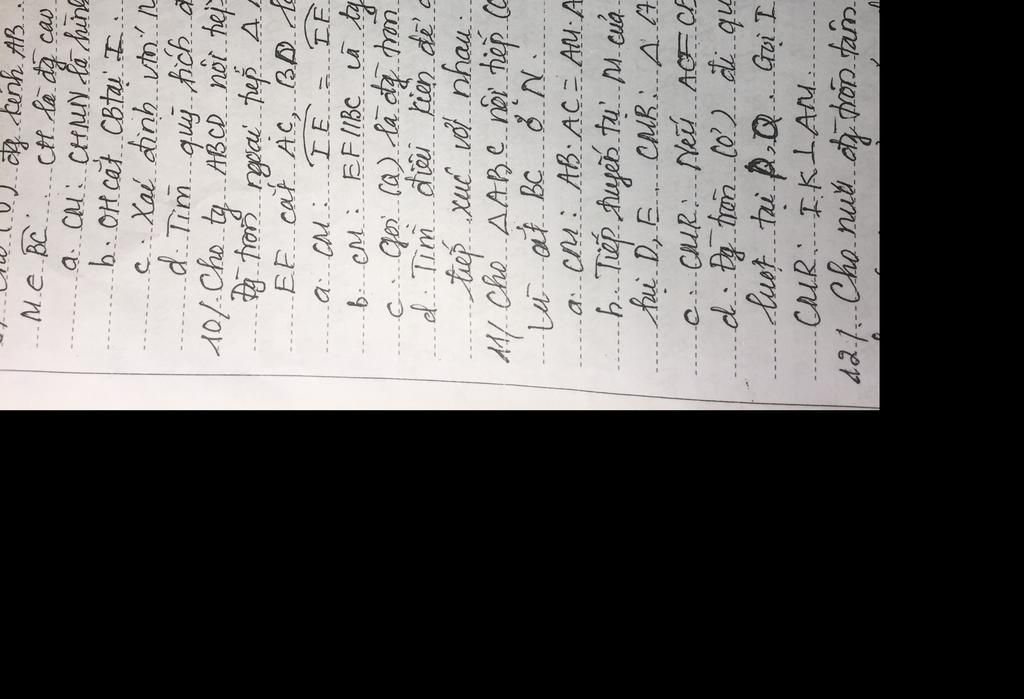 M ∈ BC. CH là đg cao
a. CM: CHMN là hình
b. OH cắt CB tại I.
c. Xác định vtrí
d. Tìm quỹ tích
10/. Cho tg ABCD nội tiếp
Đg tròn ngoại tiếp Δ
EF cắt AC, BD
a. CM: IE = IF
b. CM: EF//BC và tg
c. gọi (Q) là đg tròn
d. Tìm điều kiện để
tiếp xúc với nhau.
11/ Cho ΔABC nội tiếp
cắt BC ở N.
a. CM: AB.AC = AM.A
b. Tiếp tuyến tại M của
tại D, E. CMR: Δ A
c. CMR: Nếu
d. Đg tròn (O') đi qu
lượt tại Q. Gọi I
CMR: IK⊥AM.
12/. Cho nửa đg tròn tâm